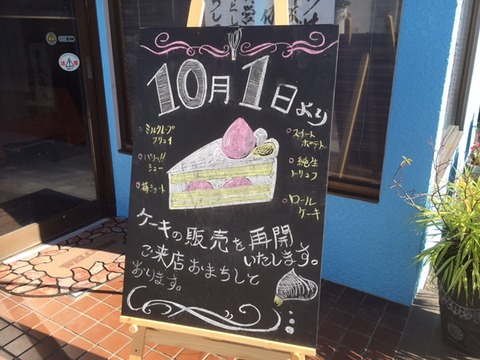 10月1日より
ミルクレープ
パリッ!!
シュー
苺ショート
スイートポテト
純生
トリュフ
ロール
ケーキ
ケーキの販売を再開
いたします。
ご来店おまちして
おります。